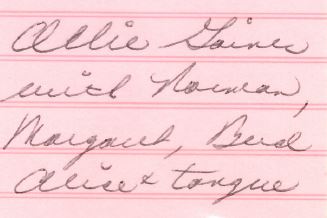 Allie Gaines
with Norman,
Margaret, Bud
Alice & Tongue